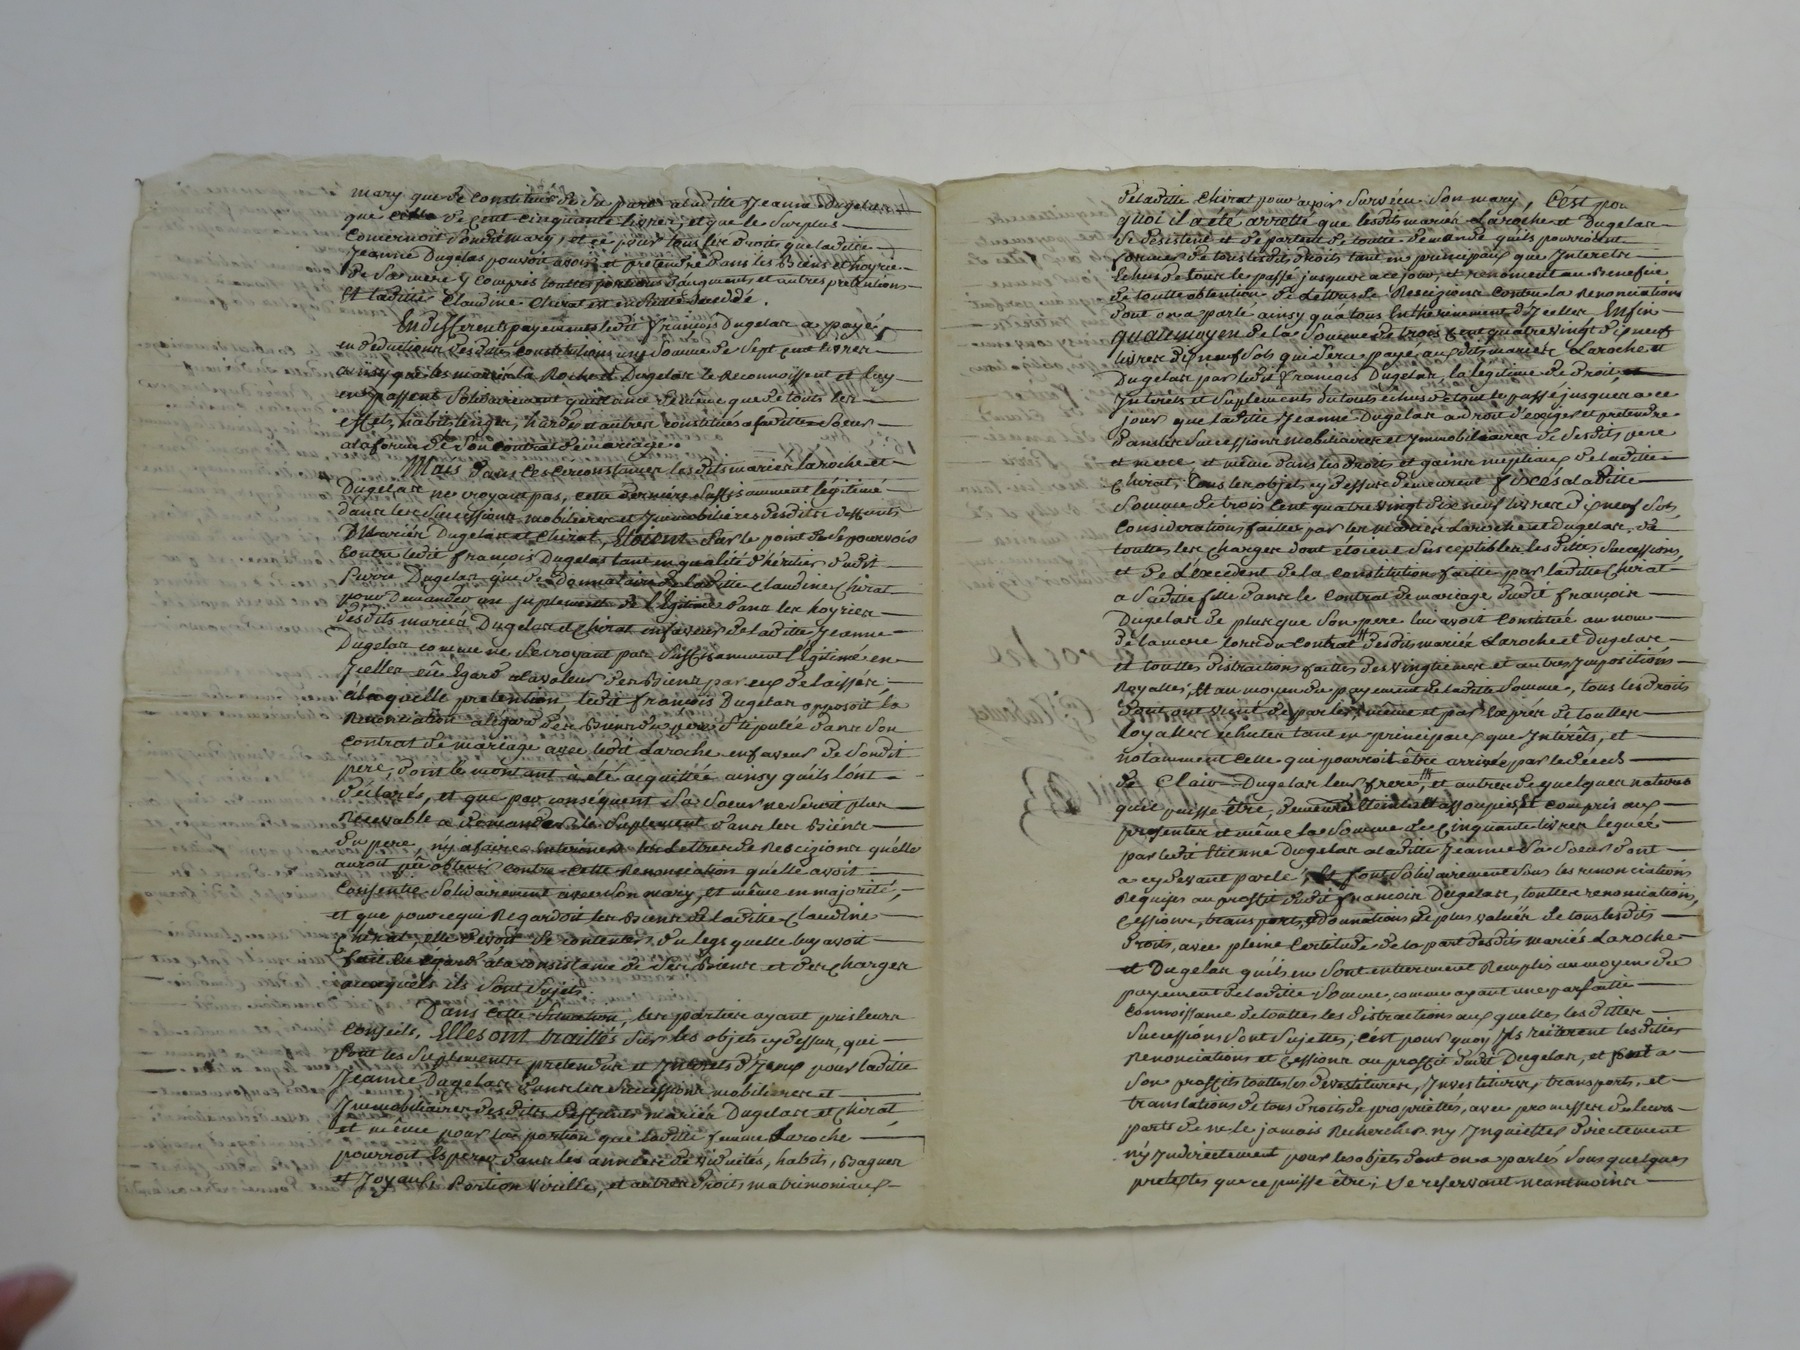 mary que de constitué de sa part a laditte Jeanne Dugelas
que celle de cent cinquante livres, et que le surplus
concernoit sondit mary, et ce pour tous les droits que laditte
Jeanne Dugelas pouvoit avoir et pretendre dans les biens et hoyrie
de sa mere y compris touttes portions d'augments et autres pretentions
et laditte Claudine Chirat est ensuitte decedée.
En differents payements ledit François Dugelas a payé,
en deduction desdittes constitutions une somme de sept cent livres
ainsy que les mariés la Roche et Dugelas le reconnoissent et luy
en passent solidairement quittance de même que de touts les
effets, habits, linges, hardes et autres constitués a saditte soeur
a la forme de son contrat de mariage.
Mais dans ces circonstances lesdits mariés laroche et
Dugelas ne croyant pas, cette derniere suffisamment légitimé
dans les successions mobiliaires et Immobiliéres desdits deffunts
mariés Dugelas et Chirat, Etoient sur le point de se pourvoir
contre ledit françois Dugelas tant en qualité d'héritier dudit
Pierre Dugelas que de Donnataire de laditte Claudine Chirat
pour demander un suplement de l'égitime dans les hoyries
desdits mariés Dugelas et Chirat en faveur de laditte Jeanne
Dugelas comme ne se croyant pas suffisamment l'égitimé en
Jcelles eû Egard a la valeur des biens par eux delaissés;
a laquelle pretention, ledit françois Dugelas opposoit la
renonciation a l'égard des biens du pere stipulée dans son
contrat de mariage avec ledit Laroche en faveur de sondit
pere, dont le montant à été acquittée ainsy qu'ils l'ont
declarés, et que par conséquent sa soeur ne seroit plus
recevable a demander de suplement dans les biens
du pere, ny a faire enteriner les Lettres de Rescizions qu'elle
auroit pû obtenir contre cette renonciation qu'elle avoit
consentie solidairement avec son mary, et même en majorité,
et que pour ce qui Regardoit les biens de laditte Claudine
Chirat, elle devoit se contenter du legs quelle luy avoit
fait eu egard a la consistance de ses biens et des charges
auxquels ils sont sujets.
Dans cette situation, les parties ayant pris leurs
conseils, Elles ont traittés sur les objets cy dessus, qui
sont les suplements pretendus et Interets d'Jceux pour laditte
Jeanne Dugelas dans les successions mobilieres et
Immobiliaires desdits deffunts mariés Dugelas et Chirat,
et même pour la portion que laditte femme Laroche
pourroit Esperer dans les années de viduités, habits, Bagues
et Joyaux Portion virille, et autres droits matrimoniaux
de laditte Chirat pour avoir survécu son mary, C'est pour
quoi il a été arretté que lesdits mariés Laroche et Dugelas
se désistent et departent de toutte demande qu'ils pourroient
former de tous lesdits droits tant en principaux que Interets
Echus de tout le passé jusques a ce jour, et renoncent au benefice
de toutte obtention de Lettres de Rescizions contre la Renonciation
dont on a parlé ainsy qu'a tous Enthérinement d'Jcelles Enfin
qu'au moyen de la somme de trois cent quatre vingt dix neuf
livres dix neuf sols qui sera payé auxdits mariés Laroche et
Dugelas par ledit François Dugelas, la legitime de droit
Interets et suplements du touts echus de tout le passé jusques a ce
jour que laditte Jeanne Dugelas a droit d'exiger et pretendre
dans les successions mobiliaires et Immobiliaires de sesdits pere
et mere et même dans les droits et gains nuptiaux de laditte
Chirat, tous les objets cy dessus demeurent fixés a laditte
somme de trois Cent quatre vingt dix neuf livres dix neuf sols,
considerations faittes par les mariés Laroche et Dugelas, de
touttes les charges dont étoient susceptibles lesdittes successions,
et de L'excédent de la constitution faitte par laditte Chirat
a saditte fille dans le contrat de mariage dudit françois
Dugelas de plus que son pere lui avoit constitué au nom
de la mere lors du contrat desdits mariés Laroche et Dugelas
et touttes distractions faittes des vingtiemes et autres Impositions
Royalles; et au moyen du payement de laditte somme, tous les droits
dont on vient de parler, même et par exprés de touttes
loyalles echutes tant en principaux que Interets, et
notamment celle qui pourroit être arrivée par le décés
de Clair Dugelas leur frere, et autres de quelques natures
quil puisse être, demeure Eteints et assoupies, et compris aux
presentes et même la somme de cinquante livres leguée
par ledit Etienne Dugelas a laditte Jeanne sa soeur dont
a cy devant parlé; Et font solidairement sous les renonciations
Requises au proffit dudit françois Dugelas, touttes renonciations,
Cessions, transports, donnations de plus values de tous lesdits
droits, avec pleine Certitude de la part desdits mariés Laroche
et Dugelas qu'ils en sont entierement Remplis au moyen du
payement de laditte somme, comme ayant une parfaitte
connoissance de touttes les distractions aux quelles lesdittes
successions sont sujettes; c'est pour quoy Jls réiterent lesdittes
renonciations et cessions au proffit dudit Dugelas, et font a
son proffits touttes les devestitures, Investitures, transports, et
translations de tous droits de propriettés, avec promesses de leurs
parts de ne le jamais Rechercher ny Inquietter directement
n'y Indirectement pour les objets dont on a parlés sous quelques
pretextes que ce puisse être; se reservant neantmoins